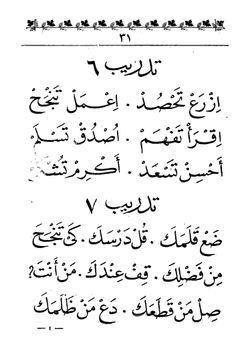 ٣١
تدريب ٦
اِزْرَعْ تَحْصُدْ . اِعْمَلْ تَنْجَحْ
اِقْرَأْ تَفْهَمْ . اُصْدُقْ تَسْلَمْ
أَحْسِنْ تَسْعَدْ . أَكْرِمْ
تدريب ٧
ضَعْ قَلَمَكَ . قُلْ دَرْسَكَ . كَىْ تَنْجَحَ
مِنْ فَضْلِكَ . قِفْ عِنْدَكَ . مَنْ أَنْتَ ؟
صِلْ مَنْ قَطَعَكَ . دَعْ مَنْ ظَلَمَكَ